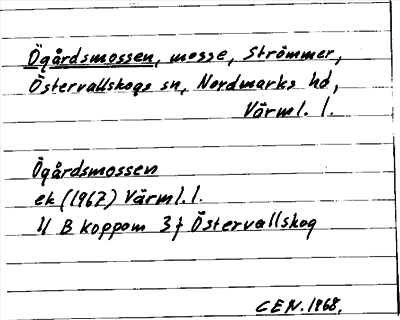 Ögårdsmossen, mosse, Strömmer,
Östervallskogs sn, Nordmarks hd,
Värml. l.
Ögårdsmossen
ek (1967) Värml. l.
11 B Koppom 3f Östervallskog
CEN. 1968.